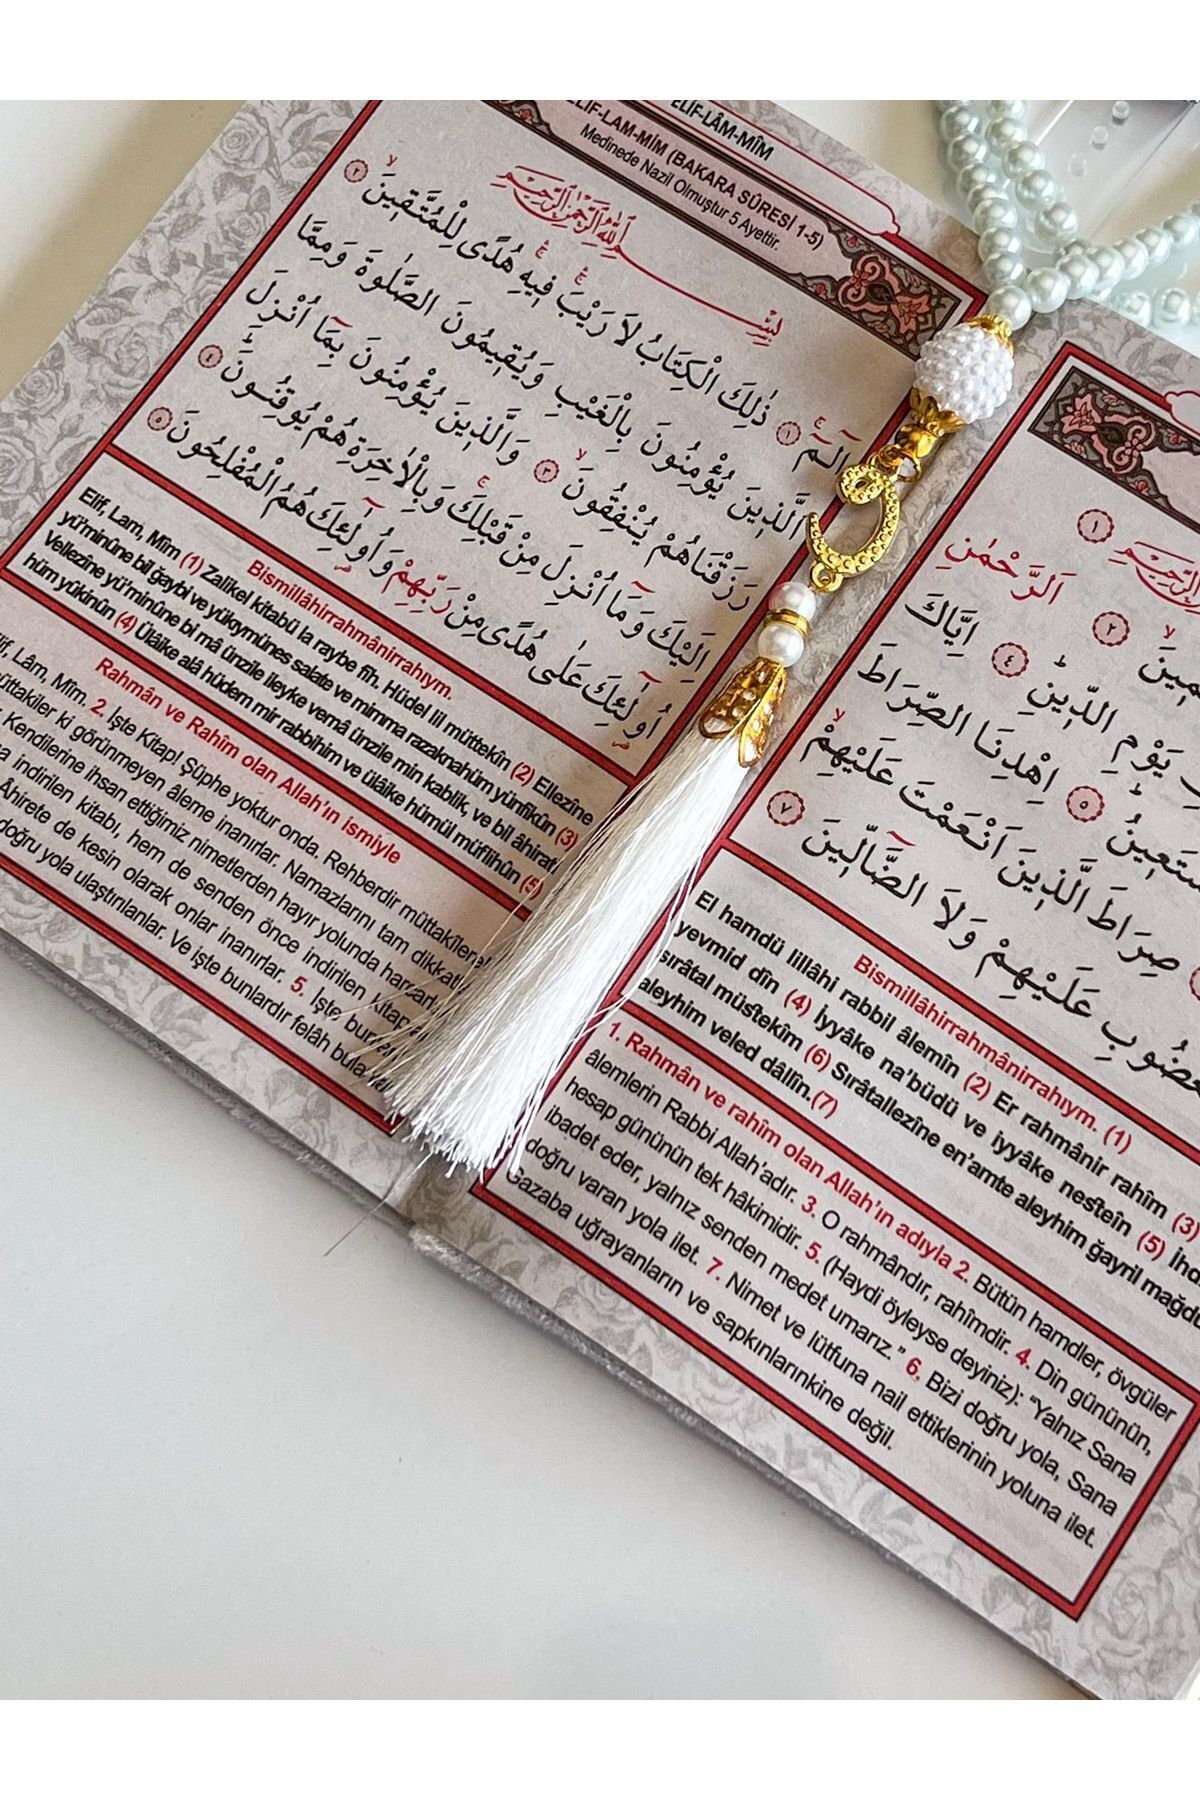 ELİF-LÂM-MÎM
ELİF-LAM-MİM (BAKARA SÛRESİ 1-5)
Medinede Nazil Olmuştur 5 Ayettir.
بِسْمِ اللّٰهِ الرَّحْمٰنِ الرَّحِيمِ
الٓمٓ ١ ذٰلِكَ الْكِتَابُ لَا رَيْبَ فِيهِ هُدًى لِلْمُتَّقِينَ ٢
اَلَّذِينَ يُؤْمِنُونَ بِالْغَيْبِ وَيُقِيمُونَ الصَّلٰوةَ وَمِمَّا
رَزَقْنَاهُمْ يُنْفِقُونَ ٣ وَالَّذِينَ يُؤْمِنُونَ بِمَٓا اُنْزِلَ
اِلَيْكَ وَمَٓا اُنْزِلَ مِنْ قَبْلِكَ وَبِالْاٰخِرَةِ هُمْ يُوقِنُونَ ٤
اُولٰٓئِكَ عَلٰى هُدًى مِنْ رَبِّهِمْ وَاُولٰٓئِكَ هُمُ الْمُفْلِحُونَ ٥
Bismillâhirrahmânirrahıym.
Elif, Lam, Mîm (1) Zalikel kitabü la raybe fîh. Hüdel lil müttekîn (2) Ellezîne
yü'minûne bil ğaybi ve yükymünes salate ve mimma razaknahüm yünfikûn (3)
Vellezîne yü'minûne bi mâ ünzile ileyke vemâ ünzile min kablik, ve bil âhirati
hüm yûkinûn (4) Ülâike alâ hüdem mir rabbihim ve ülâike hümül müflihûn (5)
Rahmân ve Rahîm olan Allah'ın ismiyle
Lâm, Mîm. 2. İşte Kitap! Şüphe yoktur onda. Rehberdir müttakîlere
müttakiler ki görünmeyen âleme inanırlar. Namazlarını tam dikkatle
Kendilerine ihsan ettiğimiz nimetlerden hayır yolunda harcarlar
indirilen kitabı, hem de senden önce indirilen kitapları
Âhirete de kesin olarak onlar inanırlar. 5. İşte bunlar
doğru yola ulaştırılanlar. Ve işte bunlardır felâh bulanlar
١
الرَّحِيمِ
٢ اَلرَّحْمٰنِ
يَوْمِ الدِّينِ ٤ اِيَّاكَ
٥ اِهْدِنَا الصِّرَاطَ
صِرَاطَ الَّذِينَ اَنْعَمْتَ عَلَيْهِمْ
عَلَيْهِمْ وَلَا الضَّٓالِّينَ ٧
Bismillâhirrahmânirrahıym. (1)
El hamdü lillâhi rabbil âlemîn (2) Er rahmânir rahîm (3)
yevmid dîn (4) İyyâke na'büdü ve iyyâke nesteîn (5) İhdi
sırâtal müstekîm (6) Sırâtallezîne en'amte aleyhim ğayril mağdu
aleyhim veled dâllîn.(7)
1. Rahmân ve rahîm olan Allah'ın adıyla 2. Bütün hamdler, övgüler
âlemlerin Rabbi Allah'adır. 3. O rahmândır, rahîmdir. 4. Din gününün,
hesap gününün tek hâkimidir. 5. (Haydi öyleyse deyiniz): "Yalnız Sana
ibadet eder, yalnız senden medet umarız." 6. Bizi doğru yola, Sana
doğru varan yola ilet. 7. Nimet ve lütfuna nail ettiklerinin yoluna ilet.
Gazaba uğrayanların ve sapkınlarınkine değil.